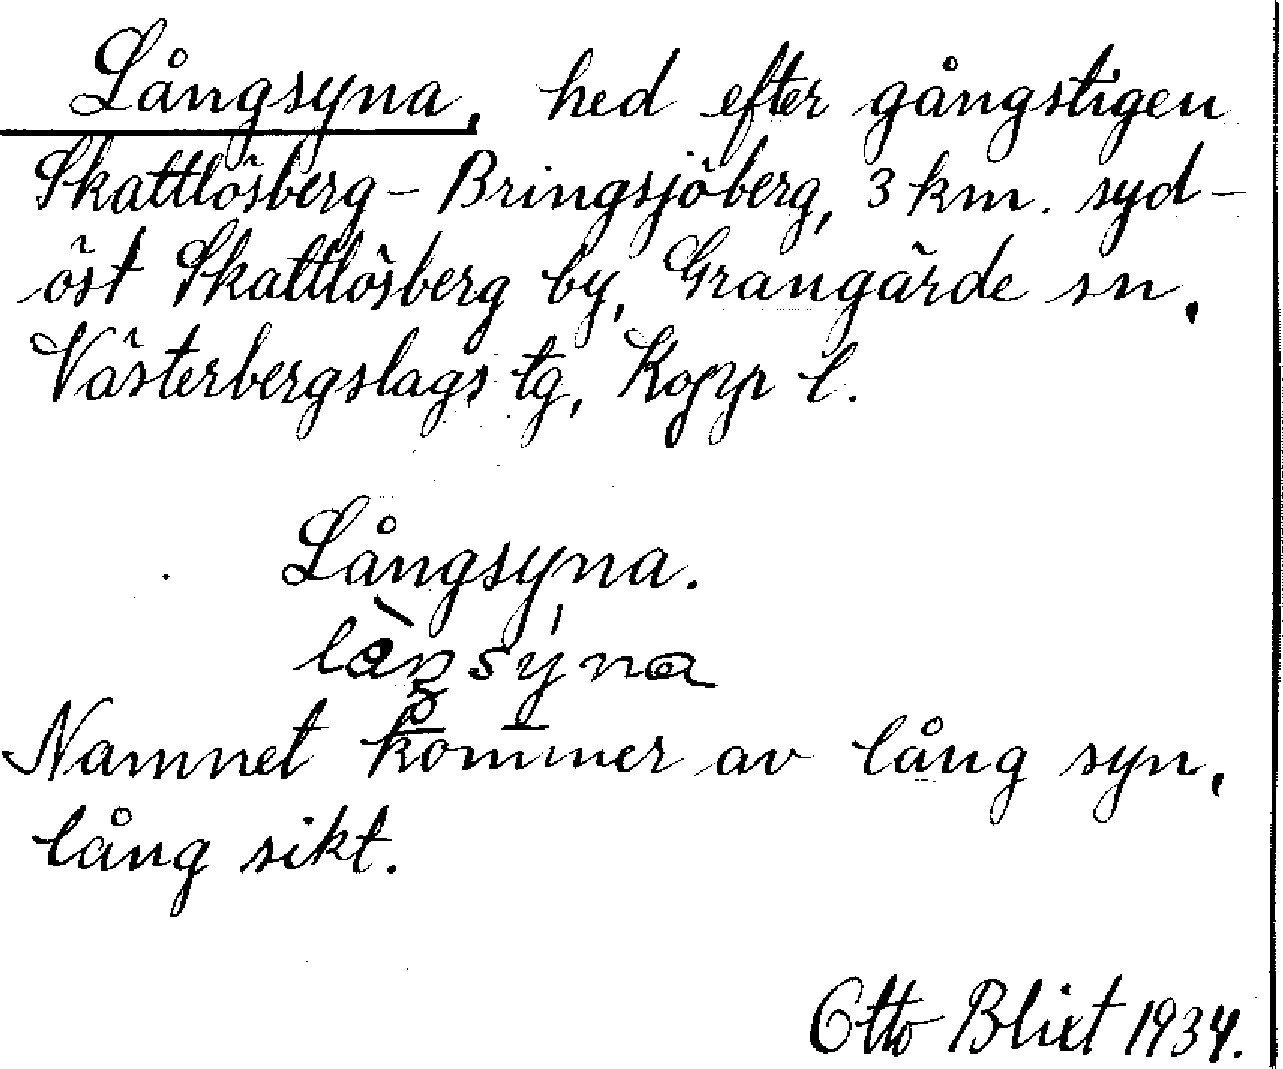 Långsyna, hed efter gångstigen
Skattlösberg - Bringsjöberg, 3 km. syd-
öst Skattlösberg by, Grangärde sn,
Västerbergslags tg, Kopp l.
Långsyna.
Namnet kommer av lång syn,
lång sikt.
Otto Blixt 1934.